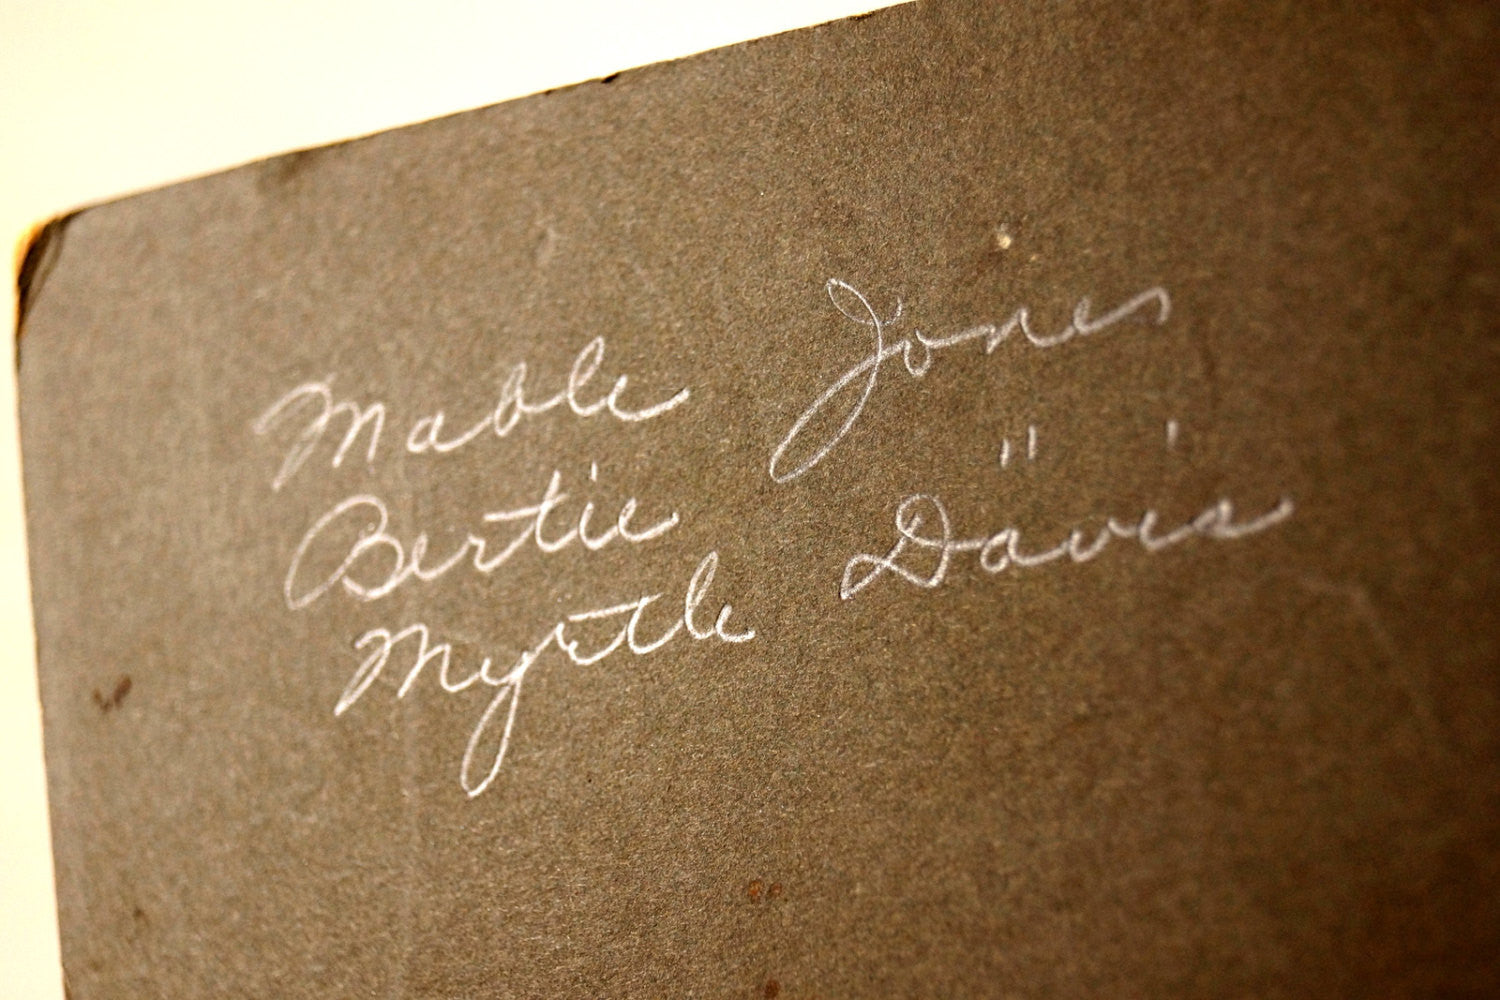 Mable Jones
Bertie "
Myrtle Davis